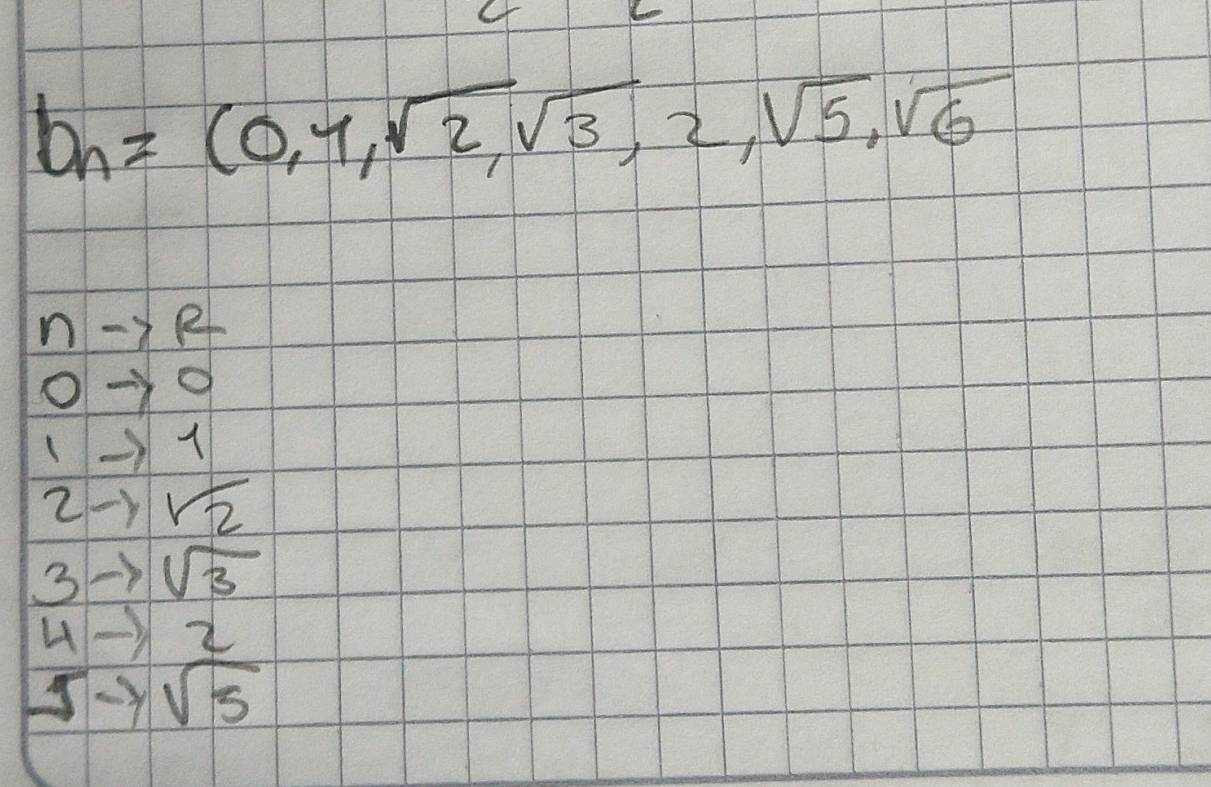 bn = (0, 1, √2, √3, 2, √5, √6
n → R
0 → 0
1 → 1
2 → √2
3 → √3
4 → 2
5 → √5